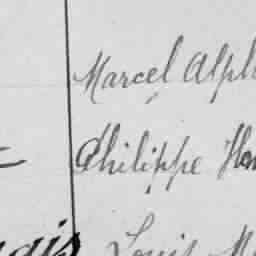 Marcel Alph
Philippe Hen
Louis M